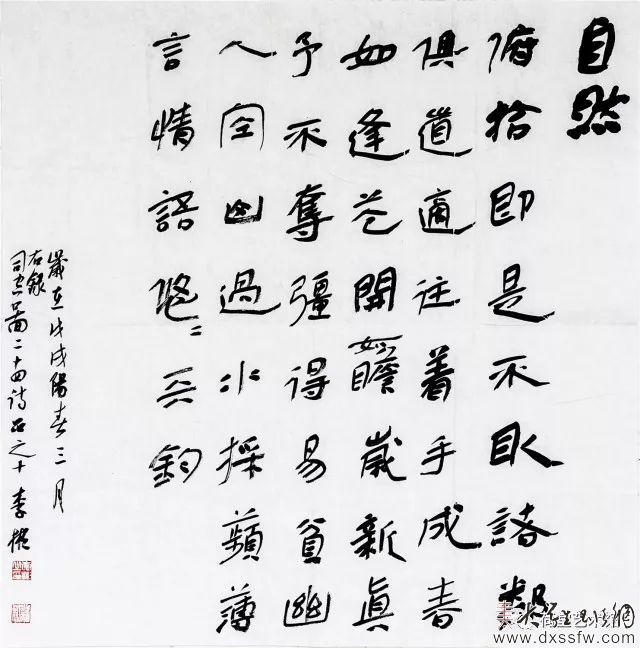 自然
俯拾即是不取諸
俱道適往着手成春
如逢花開如瞻歲新真
予不奪彊得易貧幽
人空山過水採蘋薄
言情語悠〻天鈞
歲在戊戌陽春三月
右録
司空圖二十四詩品之十 李
www.dxssfw.com